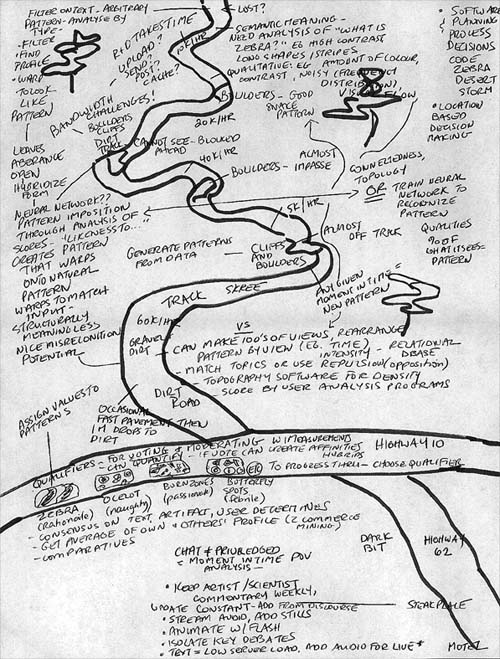 FILTER ON TEXT - ARBITRARY
PATTERN - ANALYSE BY
TYPE -
- FILTER
- FIND
PROFILE
- WARP
TO LOOK
LIKE
PATTERN
LEAVES
ABERANCE
OPEN
HYBRIDIZE
FORM
R+D TAKES TIME
UPLOAD?
SEND?
POST?
CACHE?
LOST?
10K/HR
SEMANTIC MEANING -
NEED ANALYSIS OF "WHAT IS
ZEBRA?" EG HIGH CONTRAST
LONG SHAPES/STRIPES
QUALITATIVE: EG AMOUNT OF COLOUR,
CONTRAST, NOISY (FREQUENCY
DISTRIBUTION)
• SOFTWARE
& PLANNING
PROCESS
DECISIONS
CODE
ZEBRA
DESERT
STORM
• LOCATION
BASED
DECISION
MAKING
BANDWIDTH
CHALLENGES!
BOULDERS
CLIFFS
DIRT
TRACK
BOULDERS - GOOD
SNACK
PATTERN
20K/HR
CANNOT SEE - BLOCKED
AHEAD
40K/HR
BOULDERS -
ALMOST
IMPASSE
CONNECTEDNESS,
TOPOLOGY
OR TRAIN NEURAL
NETWORK TO
RECOGNIZE
PATTERN
QUALITIES
% OF
WHAT IT SEES =
PATTERN
NEURAL NETWORK??
PATTERN IMPOSITION
THROUGH ANALYSIS OF
SCORES - "LIKENESS TO...."
CREATES PATTERN
THAT WARPS
ONTO NATURAL
PATTERN
WARPS TO MATCH
INPUT -
STRUCTURALLY
MEANINGLESS
NICE MISRECOGNITION
POTENTIAL
5K/HR
ALMOST
OFF TRACK
GENERATE PATTERNS
FROM DATA
CLIFFS
AND
BOULDERS
ANY GIVEN
MOMENT IN TIME =
NEW PATTERN
TRACK
SKREE
60K/HR
GRAVEL
DIRT
VS
- CAN MAKE 100'S OF VIEWS, REARRANGE
PATTERN BY VIEW (EG. TIME) - RELATIONAL
INTENSITY
DBASE
- MATCH TOPICS OR USE REPULSION (OPPOSITION)
- TOPOGRAPHY SOFTWARE FOR DENSITY
- SCORE BY USER ANALYSIS PROGRAMS
DIRT
ROAD
ASSIGN VALUES TO
PATTERNS
OCCASIONAL
FAST PAVEMENT THEN
IT DROPS TO
DIRT
QUALIFIERS - FOR VOTING & MODERATING W MEASUREMENTS
CAN QUANTIFY
IF VOTE CAN CREATE AFFINITIES
HYBRIDS
HIGHWAY 10
TO PROGRESS THRU - CHOOSE QUALIFIER
ZEBRA
(rationale)
OCELOT
(naughty)
BURNZONES
(passionate)
BUTTERFLY
SPOTS
- CONSENSUS ON TEXT, ARTIFACT, USER DETERMINES
- GET AVERAGE OF OWN & OTHERS' PROFILE (2 COMMERCE
MINING)
- COMPARATIVES
CHAT & PRIVILEDGED
= MOMENT IN TIME POV
ANALYSIS -
DARK
BIT
HIGHWAY
62
• KEEP ARTIST/SCIENTIST
COMMENTARY WEEKLY,
UPDATE CONSTANT - ADD FROM DISCOURSE
• STREAM AUDIO, ADD STILLS
• ANIMATE W/ FLASH
• ISOLATE KEY DEBATES
• TEXT = LOW SERVER LOAD, ADD AUDIO FOR LIVE*
STEAK PLACE
MOTEL